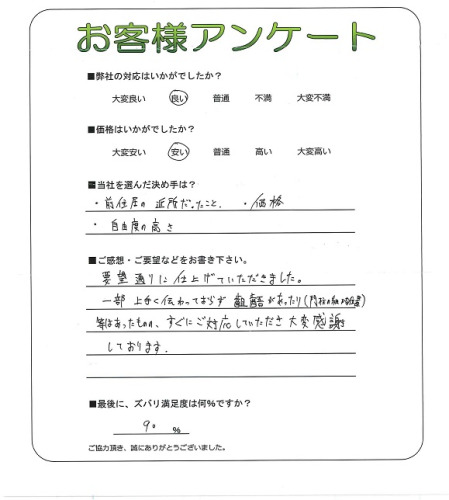 お客様アンケート
■弊社の対応はいかがでしたか？
大変良い 良い 普通 不満 大変不満
■価格はいかがでしたか？
大変安い 安い 普通 高い 大変高い
■当社を選んだ決め手は？
・前住居の近所だったこと. ・価格
・自由度の高さ
■ご感想・ご要望などをお書き下さい。
要望通りに仕上げていただきました。
一部上手く伝わっておらず齟齬があったり(
等はあったものの、すぐにご対応していただき大変感謝
しております.
■最後に、ズバリ満足度は何％ですか？
90 ％
ご協力頂き、誠にありがとうございました。